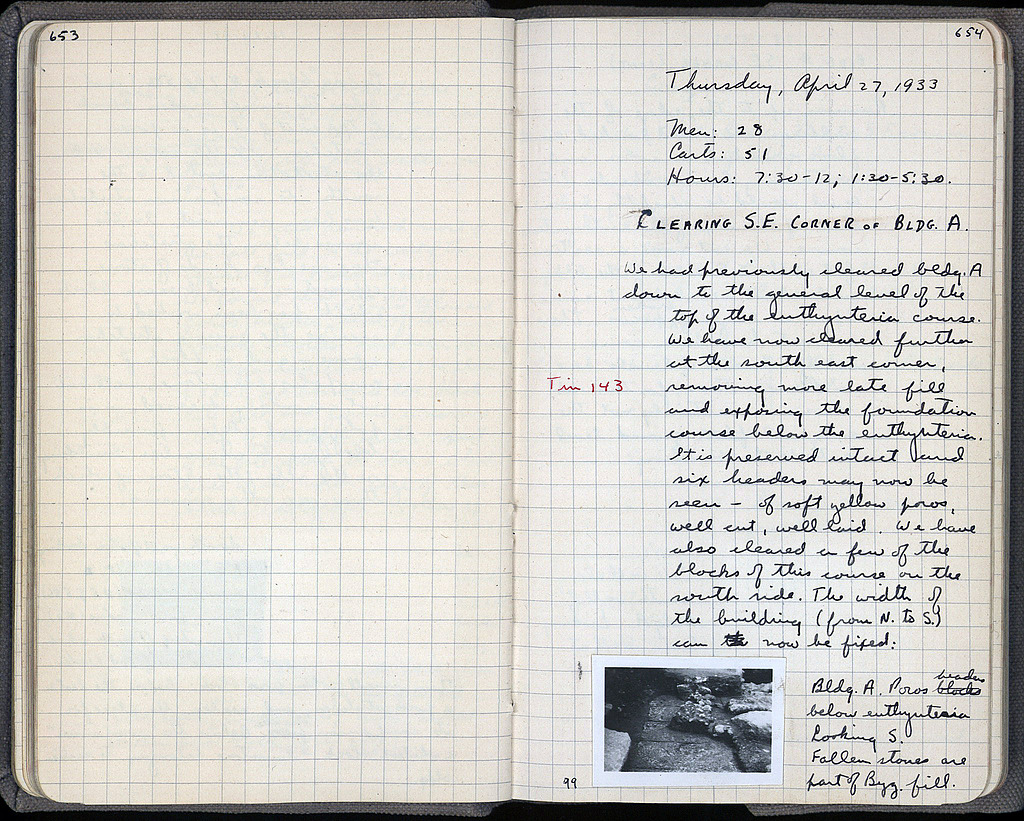 653
654
Thursday, April 27, 1933
Men: 28
Carts: 51
Hours: 7:30-12; 1:30-5:30.
CLEARING S.E. CORNER OF BLDG. A.
We had previously cleared bldg. A
down to the general level of the
top of the euthynteria course.
We have now cleared further
at the south east corner,
Tin 143
removing more late fill
and exposing the foundation
course below the euthynteria.
It is preserved intact and
six headers may now be
seen – of soft yellow poros,
well cut, well laid. We have
also cleared a few of the
blocks of this course on the
south side. The width of
the building (from N. to S.)
can now be fixed:
headers
Bldg. A. Poros blocks
below euthynteria
Looking S.
Fallen stones are
part of Byz. fill.
99